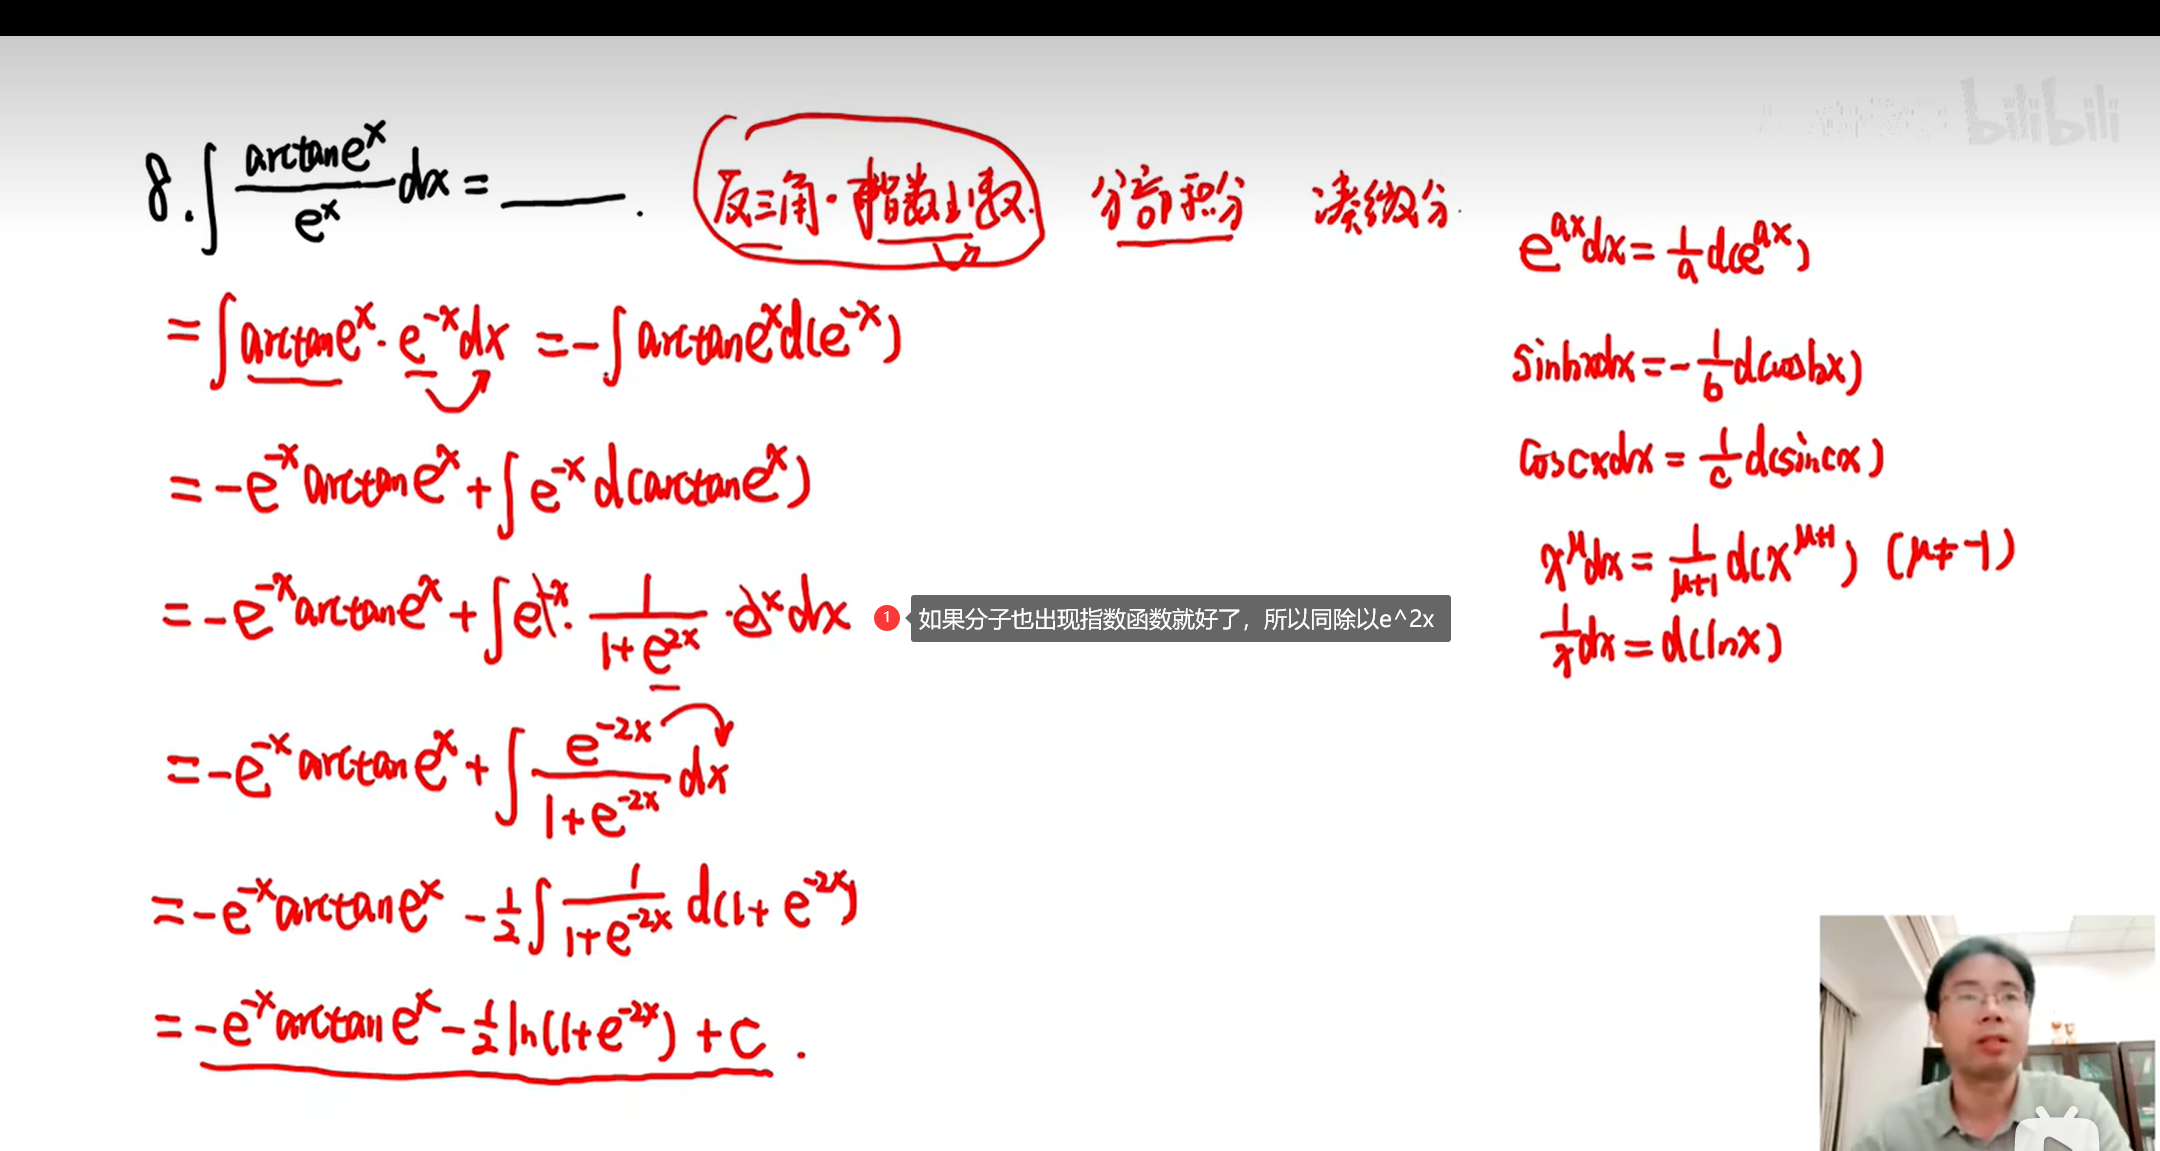 8. ∫ arctane^x / e^x dx = ____. 反三角·指数函数. 分部积分 凑微分.
= ∫ arctane^x · e^-x dx = -∫ arctane^x d(e^-x)
= -e^-x arctane^x + ∫ e^-x d(arctane^x)
= -e^-x arctane^x + ∫ e^-x · 1/(1+e^2x) · e^x dx
1 如果分子也出现指数函数就好了，所以同除以e^2x
= -e^-x arctane^x + ∫ e^-2x/(1+e^-2x) dx
= -e^-x arctane^x - 1/2 ∫ 1/(1+e^-2x) d(1+e^-2x)
= -e^-x arctane^x - 1/2 ln(1+e^-2x) + C .
e^ax dx = 1/a d(e^ax)
sinbxdx = -1/b d(cosbx)
coscxdx = 1/c d(sincx)
x^μ dx = 1/(μ+1) d(x^μ+1) (μ≠-1)
1/x dx = d(lnx)
bilibili